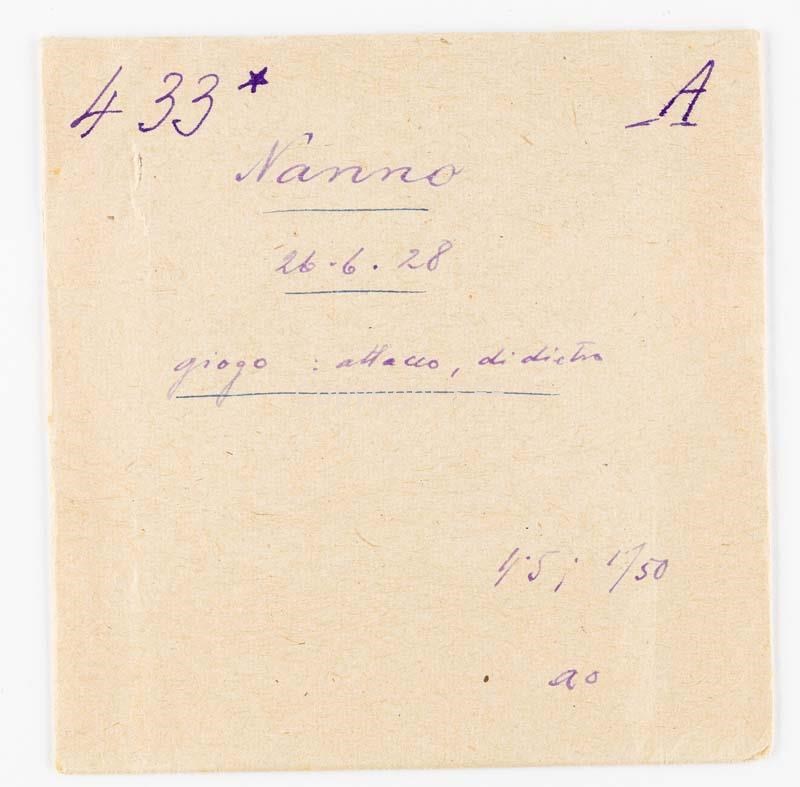 433* A
Nànno
26.6.28
giogo : attacco, di dietro
4.5; 1/50
ao